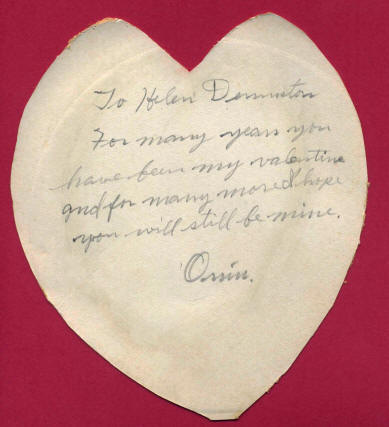 To Helen Denniston
For many years you
have been my valentine
and for many more I hope
you will still be mine.
Orrin.